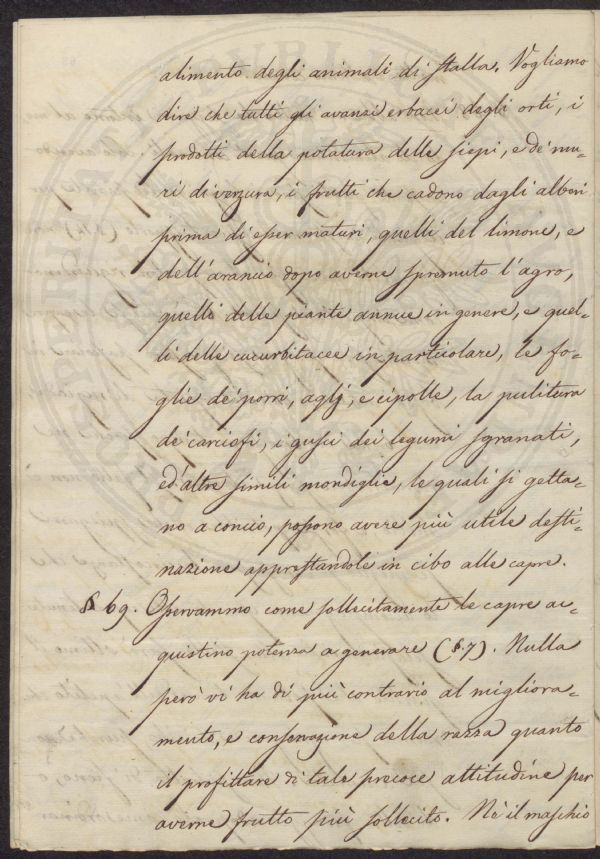 alimento degli animali di stalla. Vogliamo
dire che tutti gli avanzi erbacei degli orti, i
prodotti della potatura delle siepi, e de' mu-
ri di verzura, i frutti che cadono dagli alberi
prima di esser maturi, quelli del limone, e
dell'arancio dopo averne spremuto l'agro,
quelli delle piante annue in genere, e quel-
li delle cucurbitacee in particolare, le fo-
glie de' porri, aglj, e cipolle, la pulitura
de' carciofi, i gusci dei legumi sgranati,
ed'altre simili mondiglie, le quali si getta-
no a concio, possono avere più utile desti-
nazione apprestandole in cibo alle capre.
§ 69. Osservammo come sollecitamente le capre ac-
quistino potenza a generare (§.7). Nulla
però vi ha di più contrario al migliora-
mento, e conservazione della razza quanto
il profittare di tale precoce attitudine per
averne frutto più sollecito. Nè il maschio